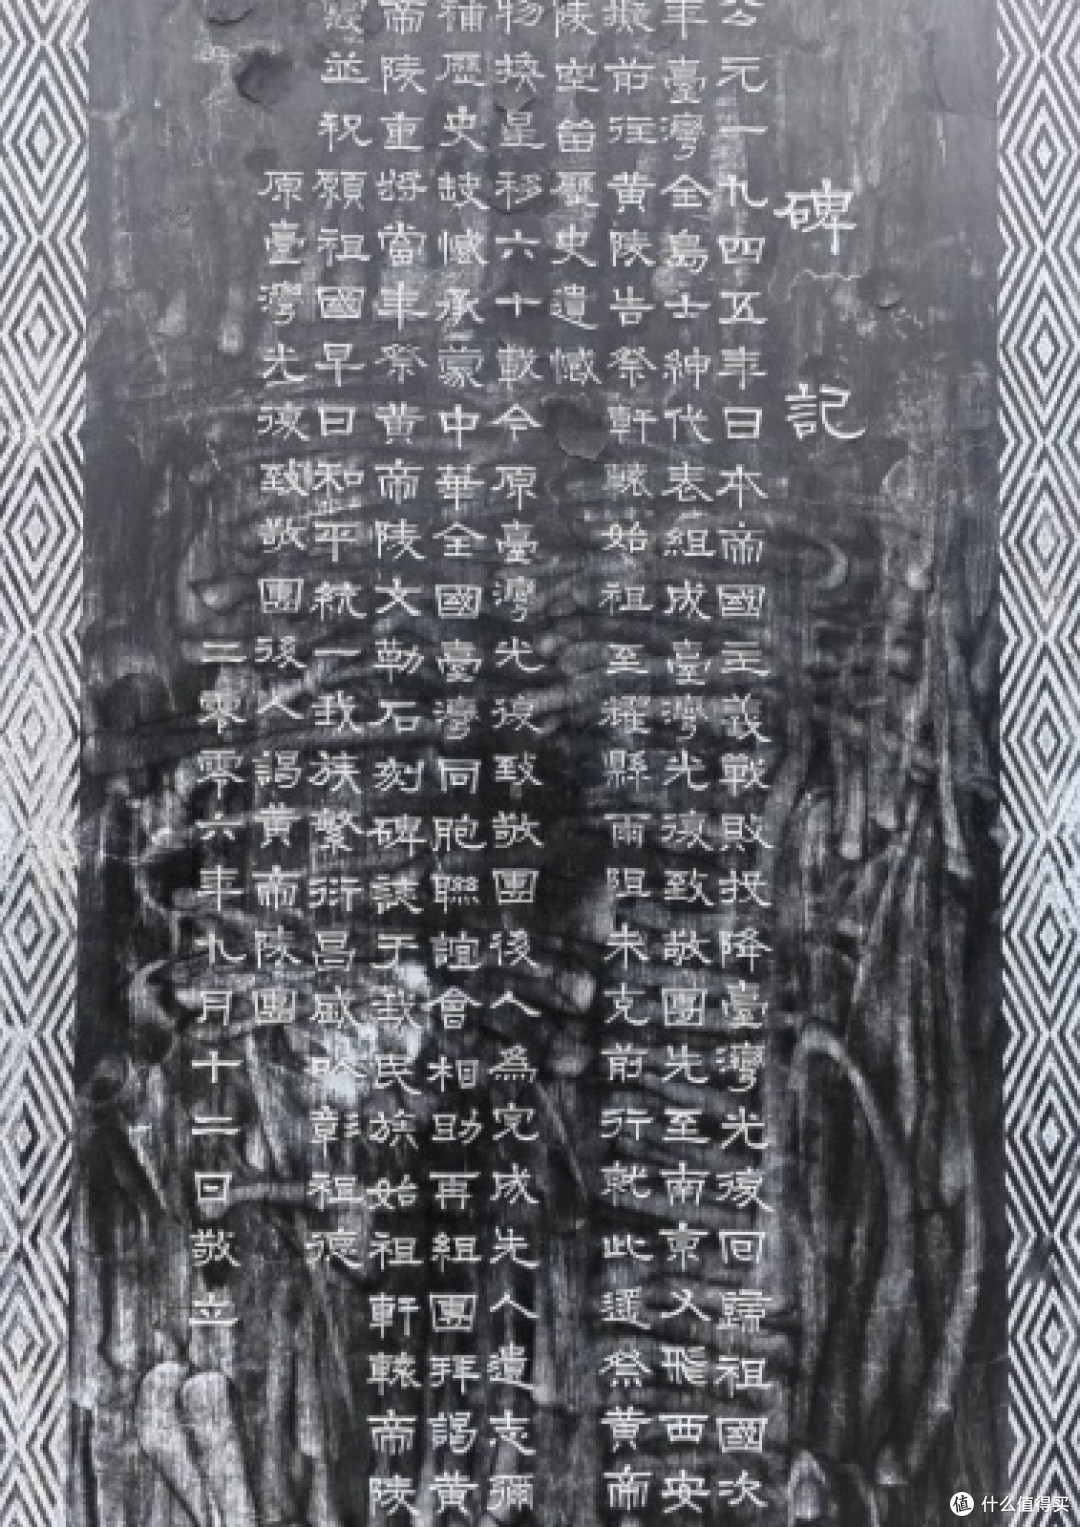 碑記
公元一九四五年日本帝國主義戰敗投降臺灣光復回歸祖國次
年臺灣全島士紳代表組成臺灣光復致敬團先至南京又飛西安
擬前往黃陵告祭軒轅始祖至耀縣雨阻未克前行就此遥祭黃帝
陵空留歷史遺憾
物換星移六十載今原臺灣光復致敬團後人爲完成先人遺志彌
補歷史缺憾承蒙中華全國臺灣同胞聯誼會相助再組團拜謁黃
帝陵重將當年祭黃帝陵文勒石刻碑誌于我民族始祖軒轅帝陵
並祝願祖國早日和平統一我族繁衍昌盛昭彰祖德
原臺灣光復致敬團後人謁黃帝陵團
二零零六年九月十二日敬立
值 什么值得买